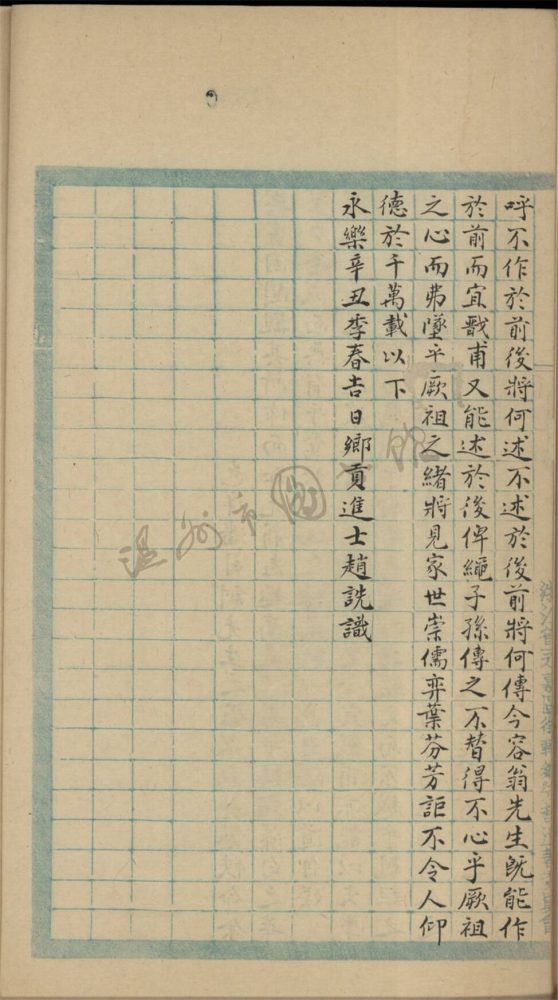 呼不作於前後將何述不述於後前將何傳今容翁先生旣能作
於前而宜戩甫又能述於後俾繩子孫傳之不替得不心乎厥祖
之心而弗墜乎厥祖之緒將見家世崇儒弈葉芬芳詎不令人仰
德於千萬載以下
永樂辛丑季春吉日鄉貢進士趙詵識
温州市圖书館